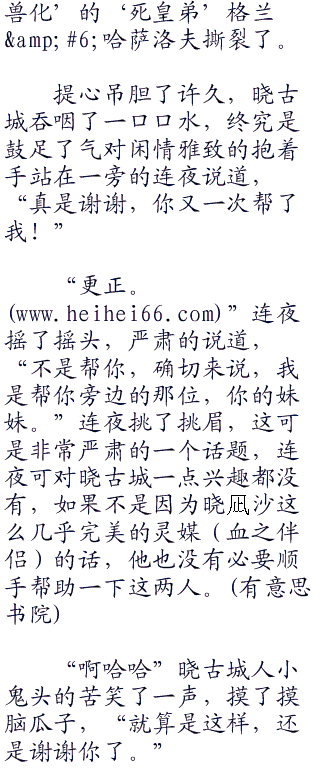 兽化’的‘死皇弟’格兰
&amp;#6;哈萨洛夫撕裂了。
提心吊胆了许久，晓古
城吞咽了一口口水，终究是
鼓足了气对闲情雅致的抱着
手站在一旁的连夜说道，
“真是谢谢，你又一次帮了
我！”
“更正。
(www.heihei66.com)”连夜
摇了摇头，严肃的说道，
“不是帮你，确切来说，我
是帮你旁边的那位，你的妹
妹。”连夜挑了挑眉，这可
是非常严肃的一个话题，连
夜可对晓古城一点兴趣都没
有，如果不是因为晓凪沙这
么几乎完美的灵媒（血之伴
侣）的话，他也没有必要顺
手帮助一下这两人。(有意思
书院)
“啊哈哈”晓古城人小
鬼头的苦笑了一声，摸了摸
脑瓜子，“就算是这样，还
是谢谢你了。”